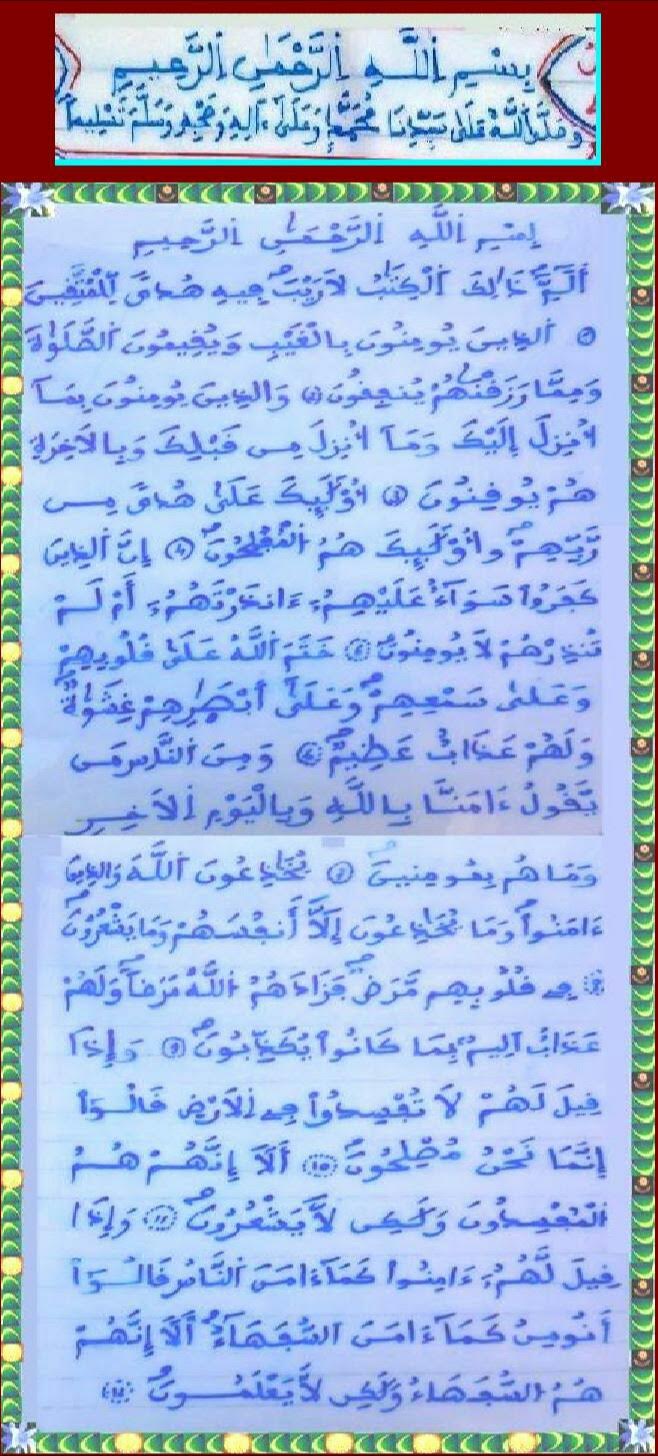 بِسْمِ اِللَّهِ اِلرَّحْمَٰنِ اِلرَّحِيمِ
وَصَلَّى اَللَّهُ عَلَىٰ سَيِّدِنَا مُحَمَّدٍ وَعَلَىٰ ءَالِهِ وَصَحْبِهِ وَسَلَّمَ تَسْلِيماً
بِسْمِ اِللَّهِ اِلرَّحْمَٰنِ اِلرَّحِيمِ
أَلَٓمِّٓ ذَٰلِكَ اَلْكِتَٰبُ لَا رَيْبَ فِيهِ هُدىً لِّلْمُتَّقِينَ
١ اَلذِينَ يُومِنُونَ بِالْغَيْبِ وَيُقِيمُونَ اَلصَّلَوٰةَ
وَمِمَّا رَزَقْنَٰهُمْ يُنفِقُونَ ٢ وَالذِينَ يُومِنُونَ بِمَآ
أُنزِلَ إِلَيْكَ وَمَآ أُنزِلَ مِن قَبْلِكَ وَبِالَاخِرَةِ
هُمْ يُوقِنُونَ ٣ أُوْلَٰٓئِكَ عَلَىٰ هُدىً مِّن
رَّبِّهِمْ وَأُوْلَٰٓئِكَ هُمُ اُلْمُفْلِحُونَ ٤ إِنَّ اَلذِينَ
كَفَرُواْ سَوَآءٌ عَلَيْهِمُۥٓ ءَآنذَرْتَهُمُۥٓ أَمْ لَمْ
تُنذِرْهُمْ لَا يُومِنُونَ ٥ خَتَمَ اَللَّهُ عَلَىٰ قُلُوبِهِمْ
وَعَلَىٰ سَمْعِهِمْ وَعَلَىٰٓ أَبْصَٰرِهِمْ غِشَٰوَةٌ
وَلَهُمْ عَذَابٌ عَظِيمٌ ٦ وَمِنَ اَلنَّاسِ مَن
يَّقُولُ ءَامَنَّا بِاللَّهِ وَبِالْيَوْمِ اِلَاخِرِ
وَمَا هُم بِمُومِنِينَ ٧ يُخَٰدِعُونَ اَللَّهَ وَالذِينَ
ءَامَنُواْ وَمَا يُخَٰدِعُونَ إِلَّآ أَنفُسَهُمْ وَمَا يَشْعُرُونَ
٨ فِے قُلُوبِهِم مَّرَضٌ فَزَادَهُمُ اُللَّهُ مَرَضاً وَلَهُمْ
عَذَابٌ اَلِيمٌۢ بِمَا كَانُواْ يُكَذِّبُونَ ٩ وَإِذَا
قِيلَ لَهُمْ لَا تُفْسِدُواْ فِے اِلَارْضِ قَالُوٓاْ
إِنَّمَا نَحْنُ مُصْلِحُونَ ١٠ أَلَآ إِنَّهُمْ هُمُ
اُلْمُفْسِدُونَ وَلَٰكِن لَّا يَشْعُرُونَ ١١ وَإِذَا
قِيلَ لَهُمُۥٓ ءَامِنُواْ كَمَآ ءَامَنَ اَلنَّاسُ قَالُوٓاْ
أَنُومِنُ كَمَآ ءَامَنَ اَلسُّفَهَآءُ اَ۬لَآ إِنَّهُمْ
هُمُ اُلسُّفَهَآءُ وَلَٰكِن لَّا يَعْلَمُونَ ١٢